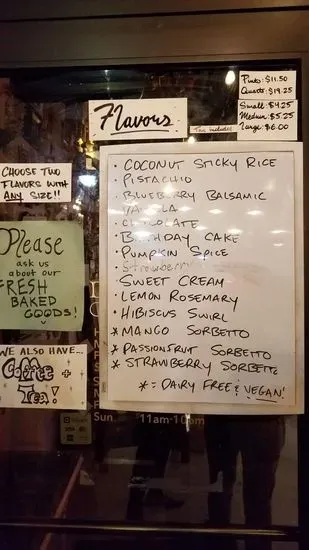 Pints: $11.50
Quarts: $19.25
Small: $4.25
Medium: $5.25
Large: $6.00
Flavors
Tax included
CHOOSE TWO
FLAVORS WITH
ANY SIZE!!
· COCONUT STICKY RICE
· PISTACHIO
· BLUEBERRY BALSAMIC
· VANILLA
· CHOCOLATE
· BIRTHDAY CAKE
· PUMPKIN SPICE
· Strawberry
· SWEET CREAM
· LEMON ROSEMARY
· HIBISCUS SWIRL
* MANGO SORBETTO
* PASSIONFRUIT SORBETTO
* STRAWBERRY SORBETTO
* = DAIRY FREE & VEGAN!
Please
ask us
about our
FRESH
BAKED
GOODS!
WE ALSO HAVE...
Coffee +
Tea!
Sun 11am-10pm